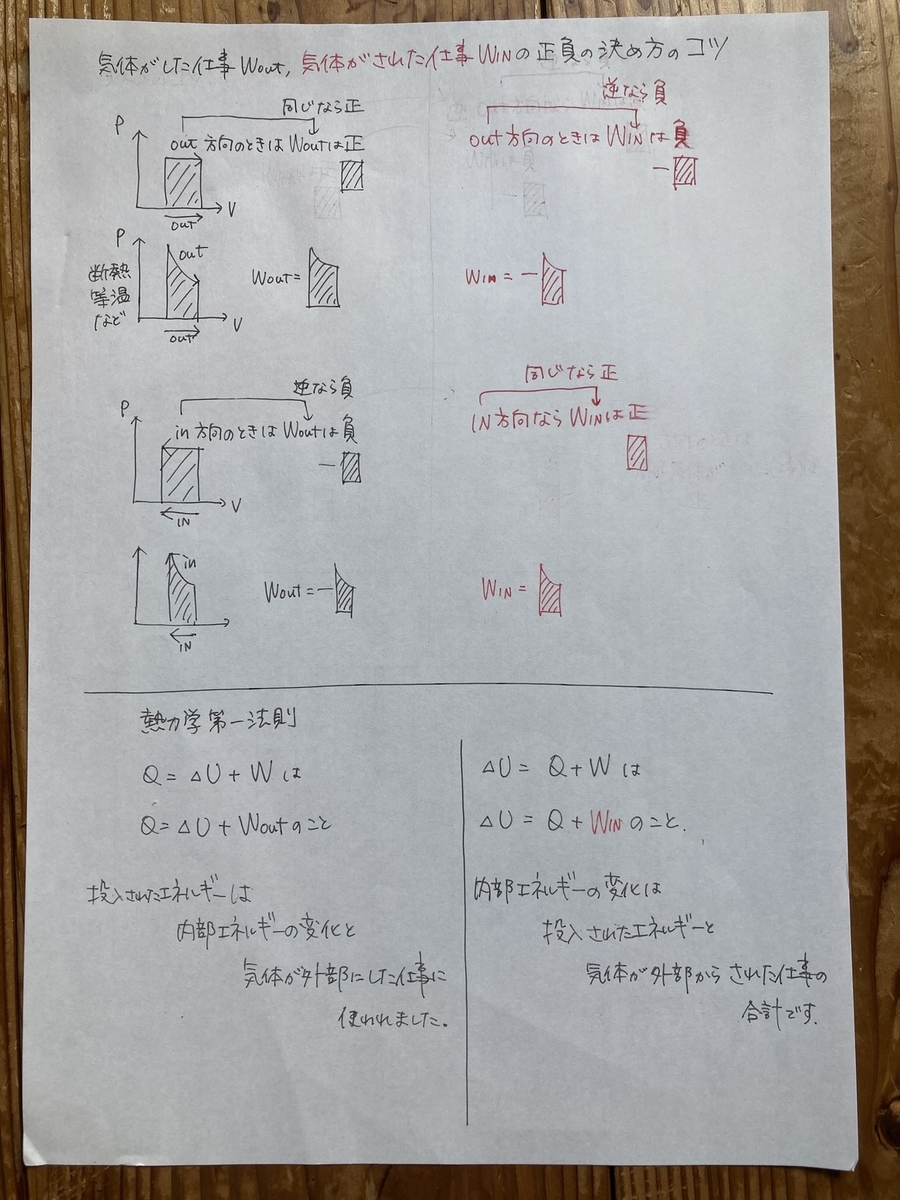 気体がした仕事Wout, 気体がされた仕事WINの正負の決め方のコツ
同じなら正
逆なら負
P
out 方向のときは Woutは正
out 方向のときは WINは負
−
V
out
P
out
断熱
等温
など
Wout=
WIN = −
V
out
逆なら負
同じなら正
P
in 方向のときは Woutは負
IN 方向なら WINは正
−
V
IN
in
Wout = −
WIN =
IN
熱力学第一法則
Q = △U + W は
Q = △U + Wout のこと
投入されたエネルギーは
内部エネルギーの変化と
気体が外部にした仕事に
使われました。
△U = Q + W は
△U = Q + WIN のこと.
内部エネルギーの変化は
投入されたエネルギーと
気体が外部から された仕事の
合計です.